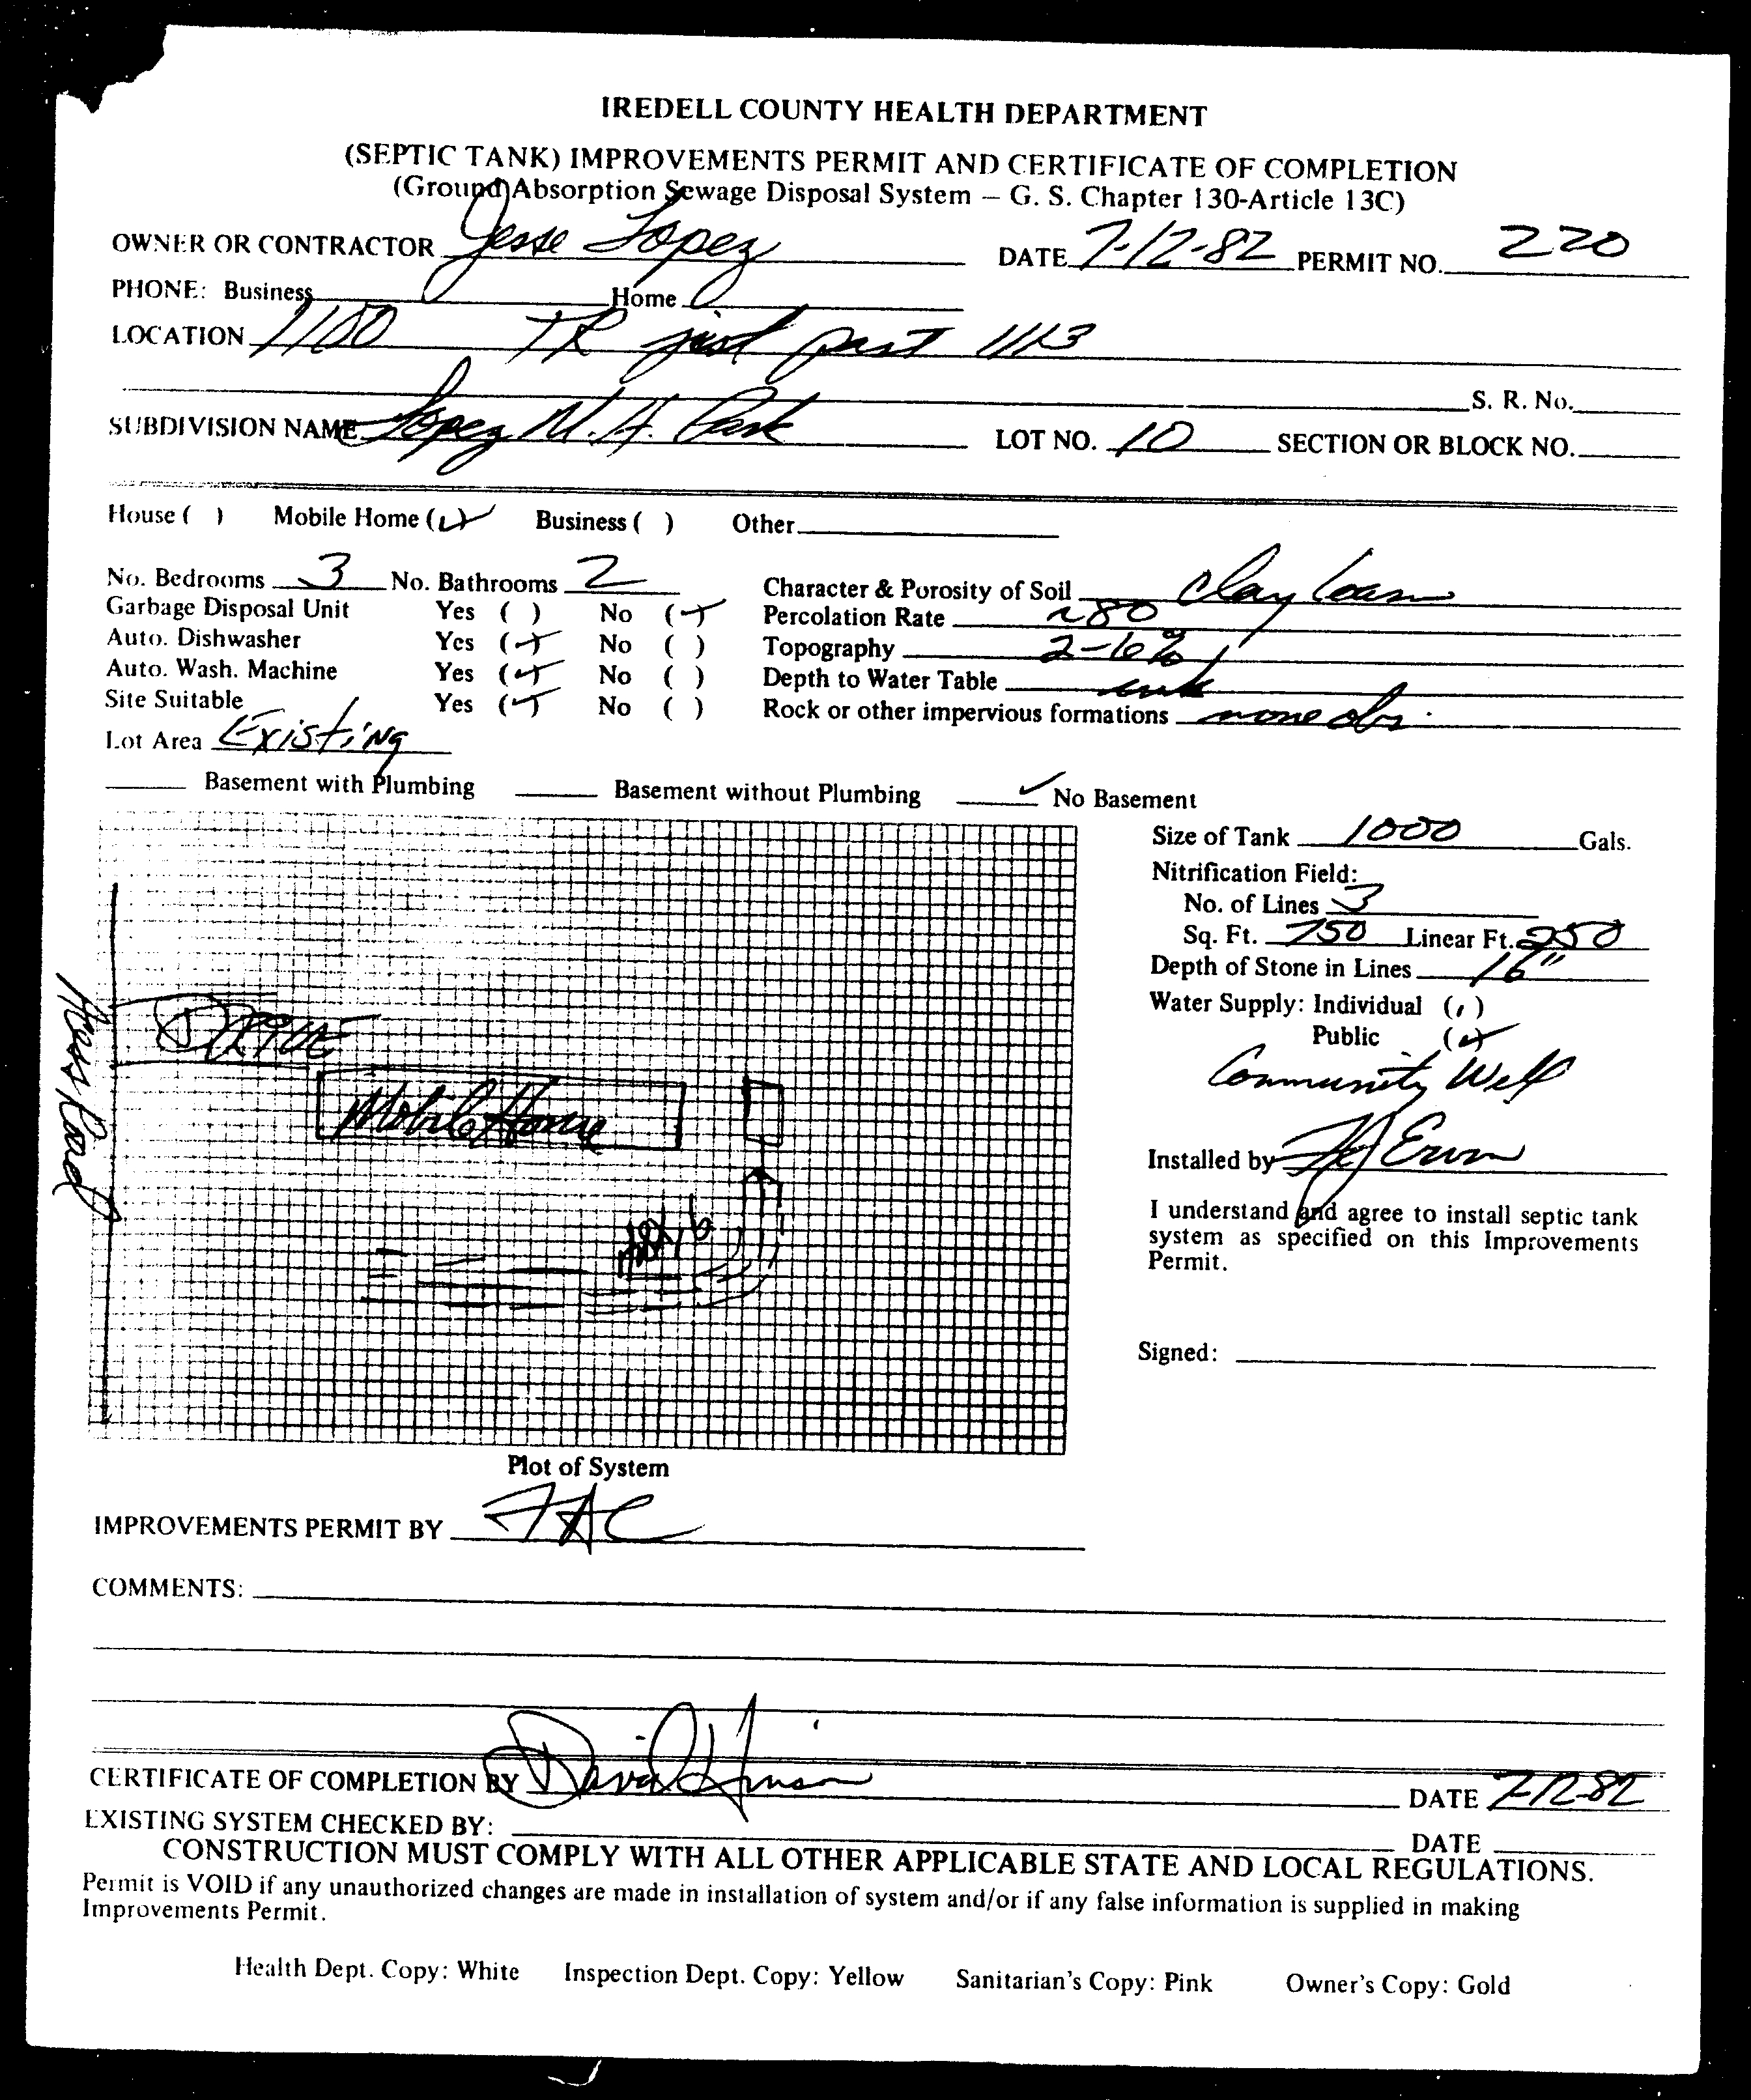 IREDELL COUNTY HEALTH DEPARTMENT
(SEPTIC TANK) IMPROVEMENTS PERMIT AND CERTIFICATE OF COMPLETION
(Ground Absorption Sewage Disposal System – G. S. Chapter 130-Article 13C)
OWNER OR CONTRACTOR Jesse Lopez DATE 7-12-82 PERMIT NO. 220
PHONE: Business Home
LOCATION 1100 TR just past 1113
S. R. No.
SUBDIVISION NAME Lopez M.H. Park LOT NO. 10 SECTION OR BLOCK NO.
House ( ) Mobile Home (✓) Business ( ) Other
No. Bedrooms 3 No. Bathrooms 2 Character & Porosity of Soil Clay Loam
Garbage Disposal Unit Yes ( ) No (✓) Percolation Rate ~80
Auto. Dishwasher Yes (✓) No ( ) Topography 2-6%
Auto. Wash. Machine Yes (✓) No ( ) Depth to Water Table unk
Site Suitable Yes (✓) No ( ) Rock or other impervious formations none obs.
Lot Area Existing
Basement with Plumbing Basement without Plumbing ✓ No Basement
Size of Tank 1000 Gals.
Nitrification Field:
No. of Lines 3
Sq. Ft. 750 Linear Ft. 250
Depth of Stone in Lines 16"
Water Supply: Individual ( )
Public (✓)
Community Well
Installed by Ervin
I understand and agree to install septic tank
system as specified on this Improvements
Permit.
Signed:
Road
DRIVE
Mobile Home
Plot of System
IMPROVEMENTS PERMIT BY FAC
COMMENTS:
CERTIFICATE OF COMPLETION BY David Hinson DATE 7-12-82
EXISTING SYSTEM CHECKED BY: DATE
CONSTRUCTION MUST COMPLY WITH ALL OTHER APPLICABLE STATE AND LOCAL REGULATIONS.
Permit is VOID if any unauthorized changes are made in installation of system and/or if any false information is supplied in making
Improvements Permit.
Health Dept. Copy: White Inspection Dept. Copy: Yellow Sanitarian's Copy: Pink Owner's Copy: Gold